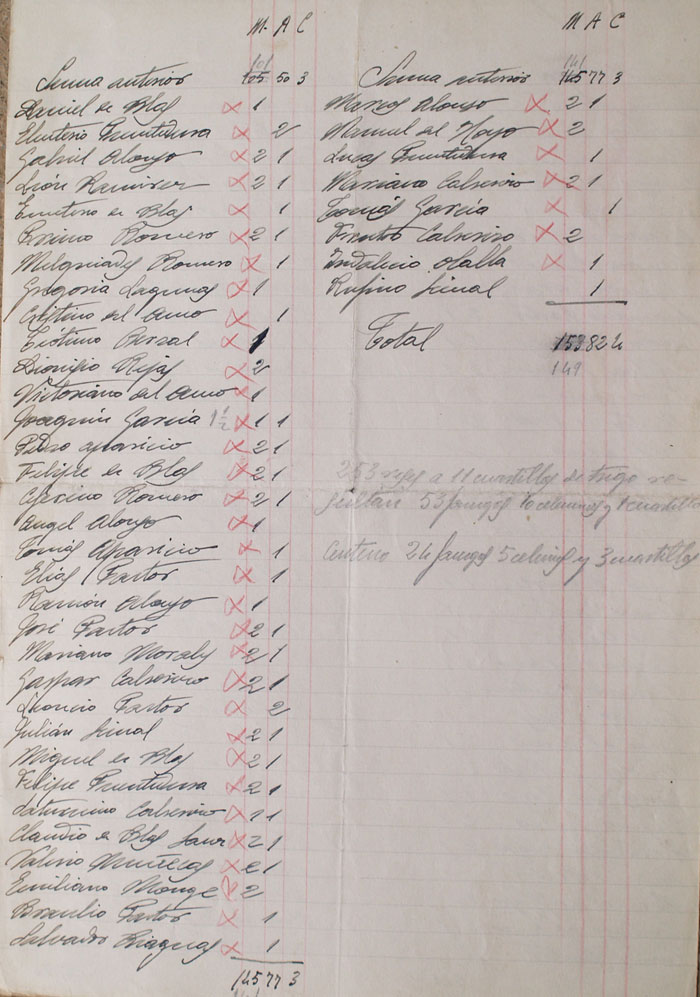 M. A C
101
Suma anterior 105 50 3
Daniel de Blas x 1
Eleuterio Fuentidueña x 2
Gabriel Alonso x 2 1
León Ramirez x 2 1
Emeterio de Blas x 1
Perino Romero x 2 1
Melquiades Romero x 1
Gregoria Lagunas x 1
Celstino del Amo x 1
Teótimo Berzal x 1
Dionisio Rejas x 2
Victoriano del Amo x 1
Joaquín García 1 1/2 x 1 1
Pedro Aparicio x 2 1
Felipe de Blas x 2 1
Ceferino Romero x 2 1
Angel Alonso x 1
Tomás Aparicio x 1
Elías Pastor x 1
Ramón Alonso x 1
José Pastor x 2 1
Mariano Morales x 2 1
Gaspar Calserino x 2 1
Leoncio Pastor x 2
Julián Sinal x 2 1
Miguel de Blas x 2 1
Felipe Fuentidueña x 2 1
Saturnino Calserino x 1 1
Claudio de Blas Sanz x 2 1
Valerio Muñecas x 2 1
Emiliano Monge x 2
Braulio Pastor x 1
Salvador x 1
145 77 3
141
M A C
141
Suma anterior 145 77 3
Marcos Alonso x 2 1
Manuel del Hoyo x 2
Lucas Fuentidueña x 1
Mariano Calserino x 2 1
Tomás García x 1
Frutos Calserino x 2
Indalecio Olalla x 1
Rufino Sinal 1
Total 153 82 4
149
253 reses a 11 cuartillos de trigo re-
sultan 53 fanegas 10 celemines y 1 cuartillo
Centeno 24 fanegas 5 celemines y 3 cuartillos